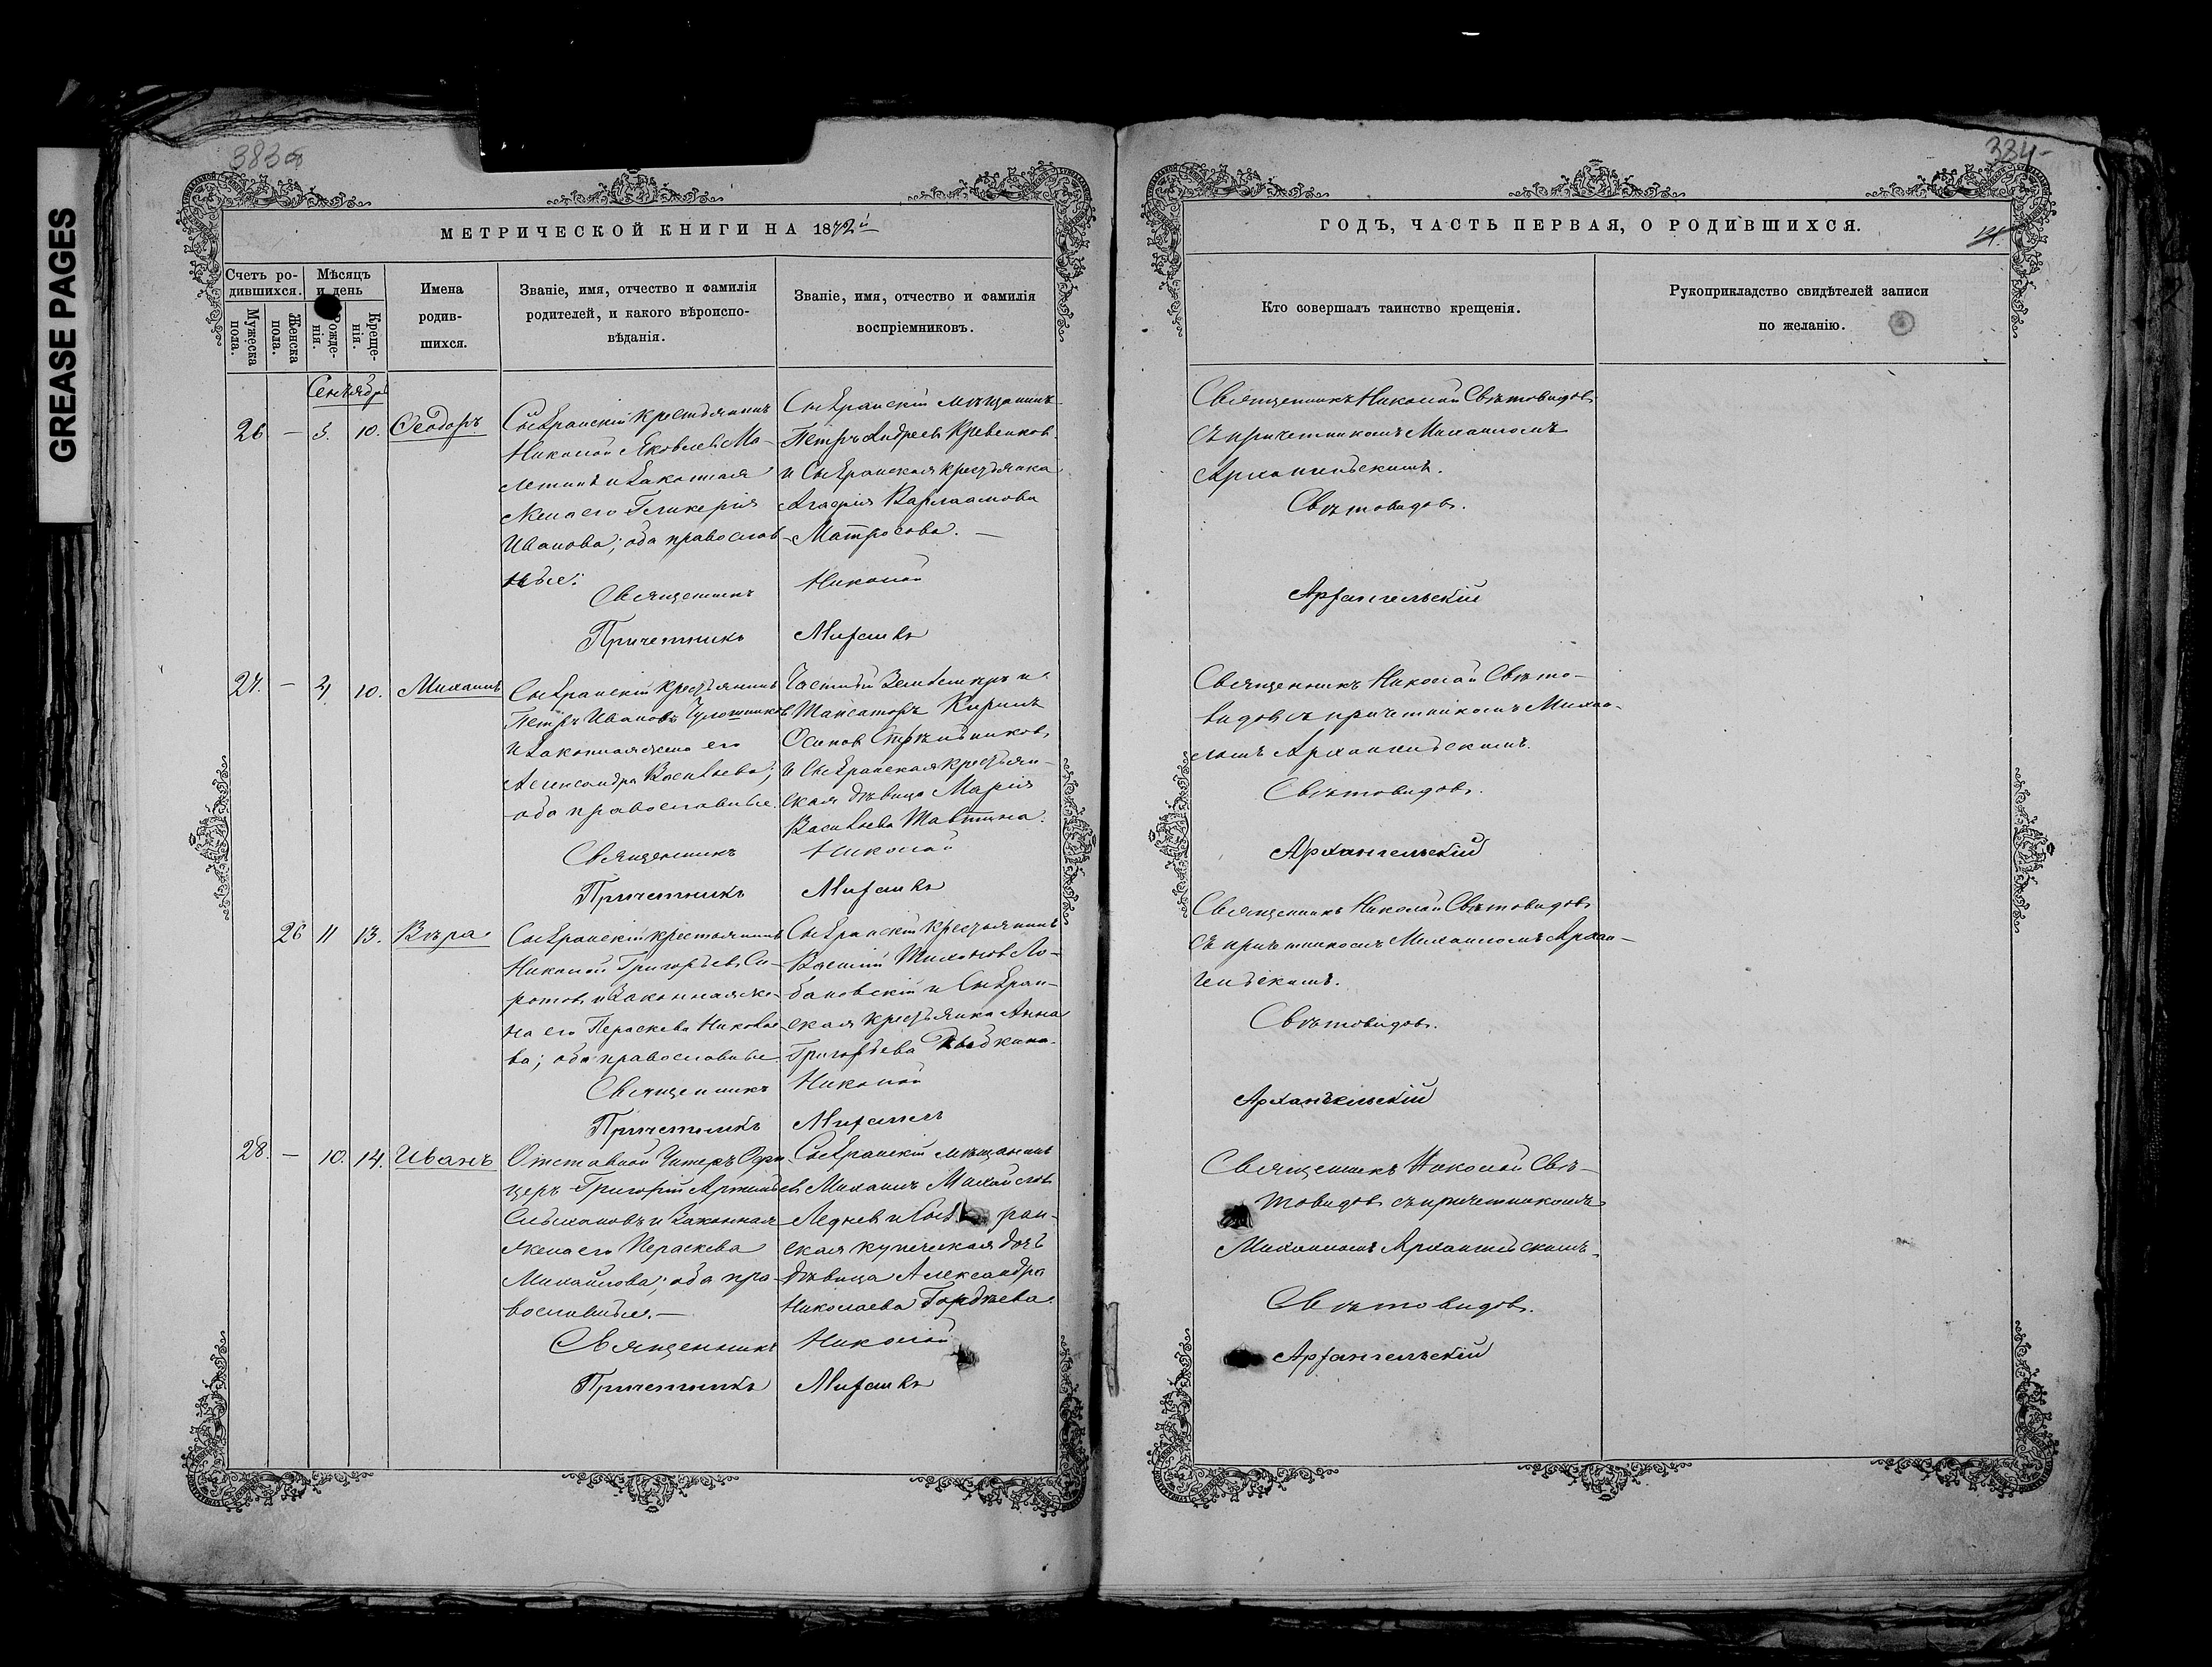 GREASE PAGES
383об
МЕТРИЧЕСКОЙ КНИГИ НА 1872й
Счетъ ро-
дившихся.
Мѣсяцъ
и день
Мужеска
пола.
Женска
пола.
Рожде-
нія.
Креще-
нія.
Имена
родив-
шихся.
Званіе, имя, отчество и фамилія
родителей, и какого вѣроиспо-
вѣданія.
Званіе, имя, отчество и фамилія
воспріемниковъ.
Сентябрь
26 — 3. 10. Ѳеодоръ
Сызранскій крестьянинъ
Николай Яковлевъ Мо-
летинъ и законная
жена его Гликерія
Иванова; оба православ-
ные.
Сызранскій мѣщанинъ
Петръ Андреевъ Кривенковъ
и Сызранская крестьянка
Агафія Варлаамова
Матросова. —
Священникъ Николай
Причетникъ Михаилъ
27. — 4. 10. Михаилъ
Сызранскій крестьянинъ
Петръ Ивановъ
и законная жена его
Александра Васильева;
оба православные.
Частный Землемѣръ и
Таксаторъ Кирилъ
Осиповъ Стрѣльниковъ
и Сызранская крестьян-
ская дѣвица Марія
Васильева
Священникъ Николай
Причетникъ Михаилъ
26 11 13. Вѣра
Сызранскій крестьянинъ
Николай Григорьевъ Си-
ротовъ и законная же-
на его Параскева Никола-
ва; оба православные
Сызранскій крестьянинъ
Василій Тихоновъ Ло-
бановскій и Сызран-
ская крестьянка Анна
Григорьева
Священникъ Николай
Причетникъ Михаилъ
28. — 10. 14. Иванъ
Отставной Унтеръ Офи-
церъ Григорій
и законная
жена его Параскева
Михайлова; оба пра-
вославные. —
Сызранскій мѣщанинъ
Михаилъ Михайловъ
Ледневъ и Сыз ран-
ская купеческая дочь
дѣвица Александра
Николаева Гордѣева.
Священникъ Николай
Причетникъ Михаилъ
384
ГОДЪ, ЧАСТЬ ПЕРВАЯ, О РОДИВШИХСЯ.
Кто совершалъ таинство крещенія.
Рукоприкладство свидѣтелей записи
по желанію.
Священникъ Николай Свѣтовидовъ
съ причетникомъ Михаиломъ
Архангельскимъ.
Свѣтовидовъ.
Архангельскій
Священникъ Николай Свѣто-
видовъ съ причетникомъ Михаи-
ломъ Архангельскимъ.
Свѣтовидовъ.
Архангельскій
Священникъ Николай Свѣтовидовъ
съ причетникомъ Михаиломъ Архан-
гельскимъ.
Свѣтовидовъ.
Архангельскій
Священникъ Николай Свѣ-
товидовъ съ причетникомъ
Михаиломъ Архангельскимъ.
Свѣтовидовъ.
Архангельскій